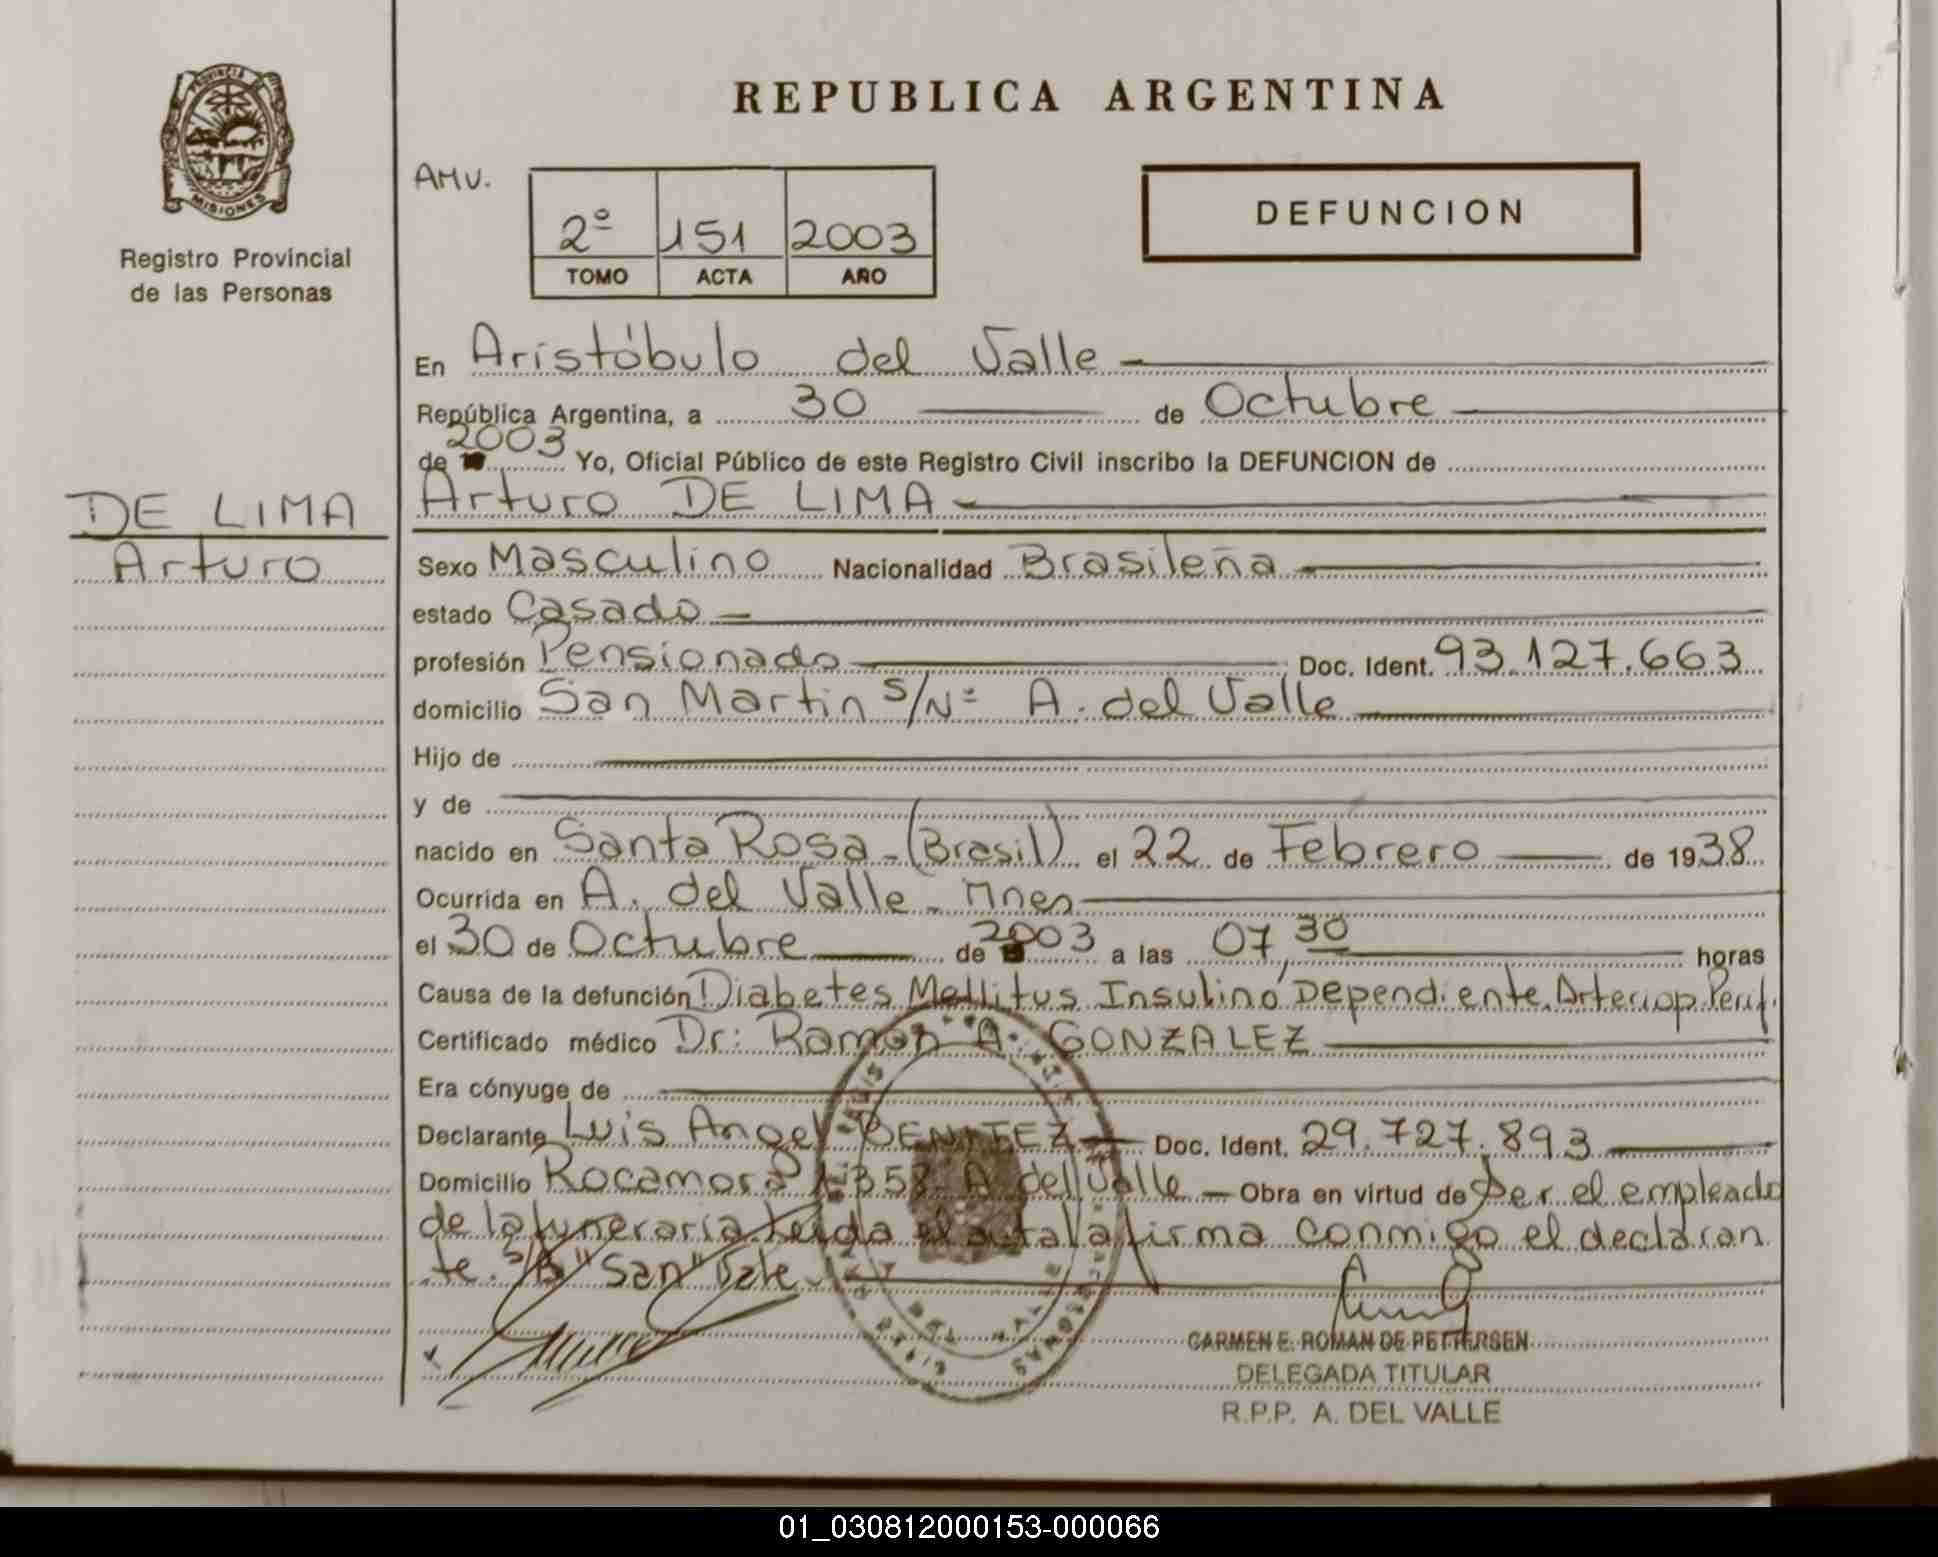 PROVINCIA DE
MISIONES
Registro Provincial
de las Personas
DE LIMA
Arturo
REPUBLICA ARGENTINA
AMV.
2º 151 2003
TOMO ACTA AÑO
DEFUNCION
En Aristóbulo del Valle
República Argentina, a 30 de Octubre
de 2003 Yo, Oficial Público de este Registro Civil inscribo la DEFUNCION de
Arturo DE LIMA
Sexo Masculino Nacionalidad Brasileña
estado Casado
profesión Pensionado Doc. Ident. 93.127.663
domicilio San Martin S/Nº A. del Valle
Hijo de
y de
nacido en Santa Rosa - (Brasil) el 22 de Febrero de 1938
Ocurrida en A. del Valle - Mnes
el 30 de Octubre de 2003 a las 07,30 horas
Causa de la defunción Diabetes Mellitus Insulino Dependiente. Arteriop. Perif.
Certificado médico Dr: Ramon A. GONZALEZ
Era cónyuge de
Declarante Luis Angel BENITEZ Doc. Ident. 29.727.893
Domicilio Rocamora 1358 A del Valle Obra en virtud de Ser el empleado
de la funeraria. Leida el acta la firma conmigo el declaran
te. S/B "San" Vale
CARMEN E. ROMAN DE PETTERSEN
DELEGADA TITULAR
R.P.P. A. DEL VALLE
01_030812000153-000066